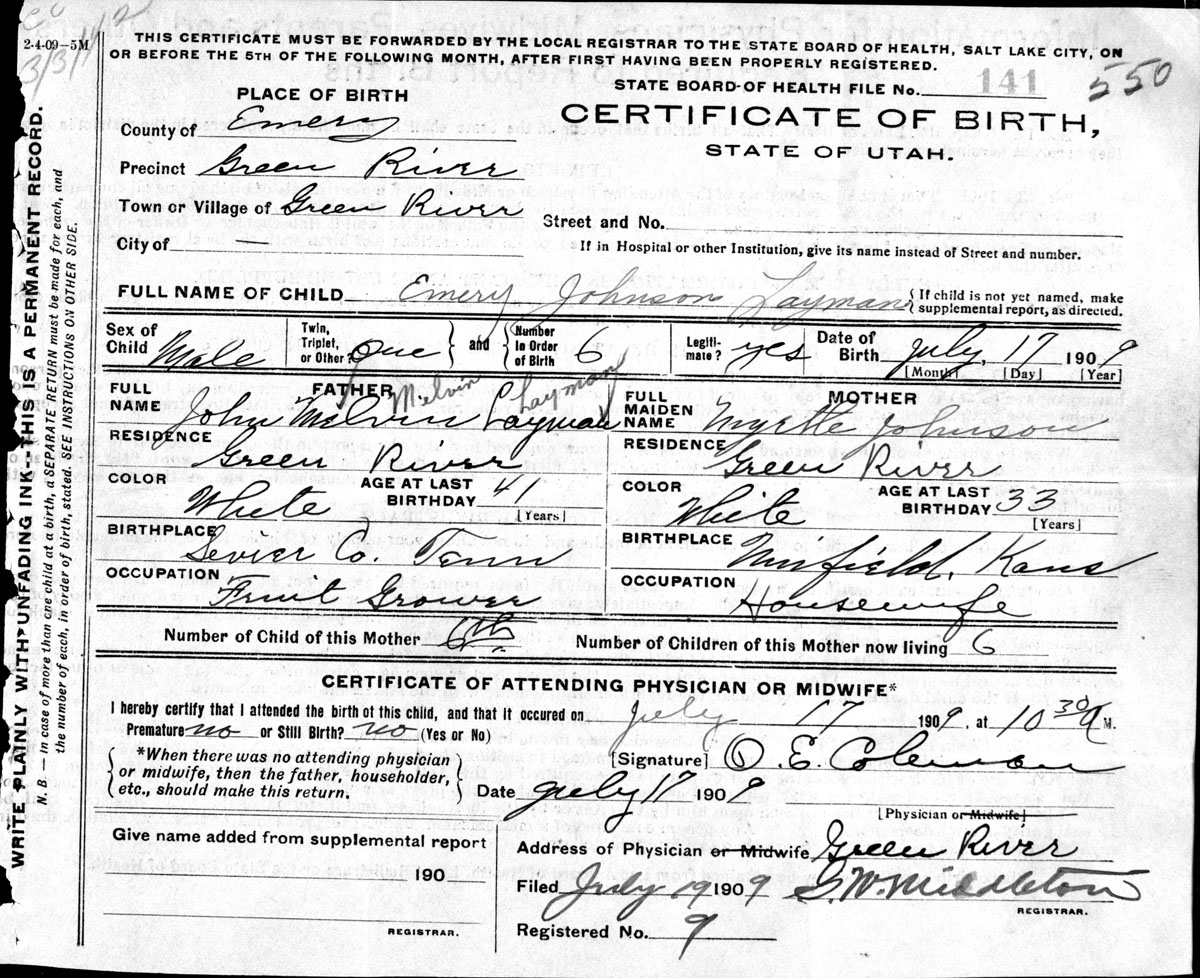 2-4-09-5M
3/3/12
THIS CERTIFICATE MUST BE FORWARDED BY THE LOCAL REGISTRAR TO THE STATE BOARD OF HEALTH, SALT LAKE CITY, ON
OR BEFORE THE 5TH OF THE FOLLOWING MONTH, AFTER FIRST HAVING BEEN PROPERLY REGISTERED.
STATE BOARD OF HEALTH FILE No. 141
550
PLACE OF BIRTH
CERTIFICATE OF BIRTH,
STATE OF UTAH.
County of Emery
Precinct Green River
Town or Village of Green River
Street and No.
City of
If in Hospital or other Institution, give its name instead of Street and number.
FULL NAME OF CHILD Emery Johnson Layman { If child is not yet named, make supplemental report, as directed.
Sex of Child Male Twin, Triplet, or Other? One } and { Number in Order of Birth 6 Legitimate? yes Date of Birth July 17 1909
[Month] [Day] [Year]
FATHER
Melvin Layman
FULL NAME John Melvin Layman
RESIDENCE Green River
COLOR White AGE AT LAST BIRTHDAY 41 [Years]
BIRTHPLACE Sevier Co. Tenn
OCCUPATION Fruit Grower
MOTHER
FULL MAIDEN NAME Myrtle Johnson
RESIDENCE Green River
COLOR White AGE AT LAST BIRTHDAY 33 [Years]
BIRTHPLACE Winfield, Kans
OCCUPATION Housewife
Number of Child of this Mother 6th Number of Children of this Mother now living 6
CERTIFICATE OF ATTENDING PHYSICIAN OR MIDWIFE*
I hereby certify that I attended the birth of this child, and that it occured on July 17 1909, at 10 30 A M.
Premature no or Still Birth? no (Yes or No)
{ *When there was no attending physician
or midwife, then the father, householder,
etc., should make this return. }
[Signature] O. E. Coleman
Date July 17 1909
[Physician or Midwife]
Give name added from supplemental report
190
REGISTRAR.
Address of Physician or Midwife Green River
Filed July 19 1909 G. W. Middleton
REGISTRAR.
Registered No. 9
WRITE PLAINLY WITH UNFADING INK-THIS IS A PERMANENT RECORD.
N. B.—In case of more than one child at a birth, a SEPARATE RETURN must be made for each, and
the number of each, in order of birth, stated. SEE INSTRUCTIONS ON OTHER SIDE.